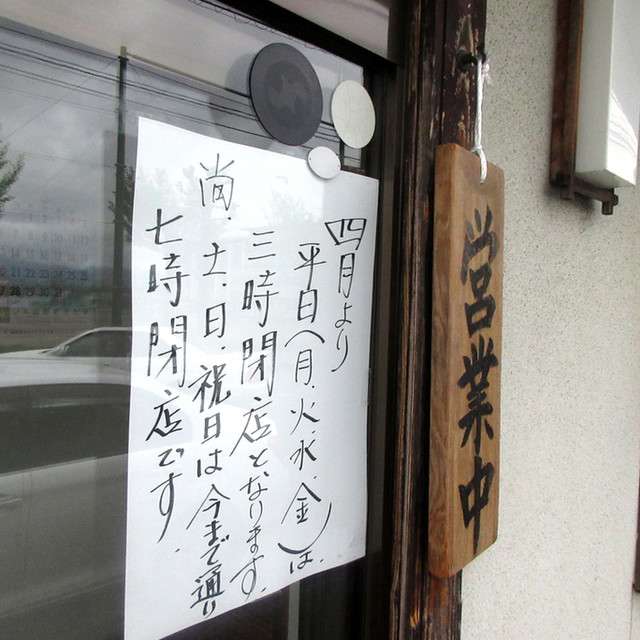 四月より
平日(月.火.水.金)は、
三時閉店となります.
尚.土.日.祝日は今まで通り
七時閉店です.
営業中